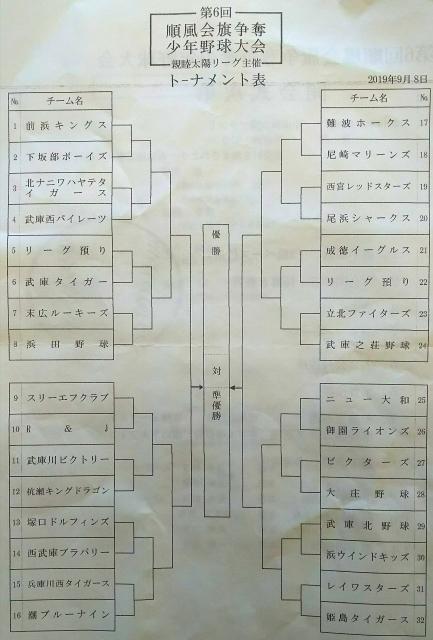 第6回
順風会旗争奪
少年野球大会
親睦太陽リーグ主催
トーナメント表
2019年9月8日
№ チーム名
1 前浜キングス
2 下坂部ボーイズ
3 北ナニワハヤテタイガース
4 武庫西パイレーツ
5 リーグ預り
6 武庫タイガー
7 末広ルーキーズ
8 浜田野球
9 スリーエフクラブ
10 R & J
11 武庫川ビクトリー
12 杭瀬キングドラゴン
13 塚口ドルフィンズ
14 西武庫ブラバリー
15 兵庫川西タイガース
16 潮ブルーナイン
優勝
対
準優勝
チーム名 №
難波ホークス 17
尼崎マリーンズ 18
西宮レッドスターズ 19
尾浜シャークス 20
成徳イーグルス 21
リーグ預り 22
立北ファイターズ 23
武庫之荘野球 24
ニュー大和 25
御園ライオンズ 26
ビクターズ 27
大庄野球 28
武庫北野球 29
浜ウインドキッズ 30
レイワスターズ 31
姫島タイガース 32